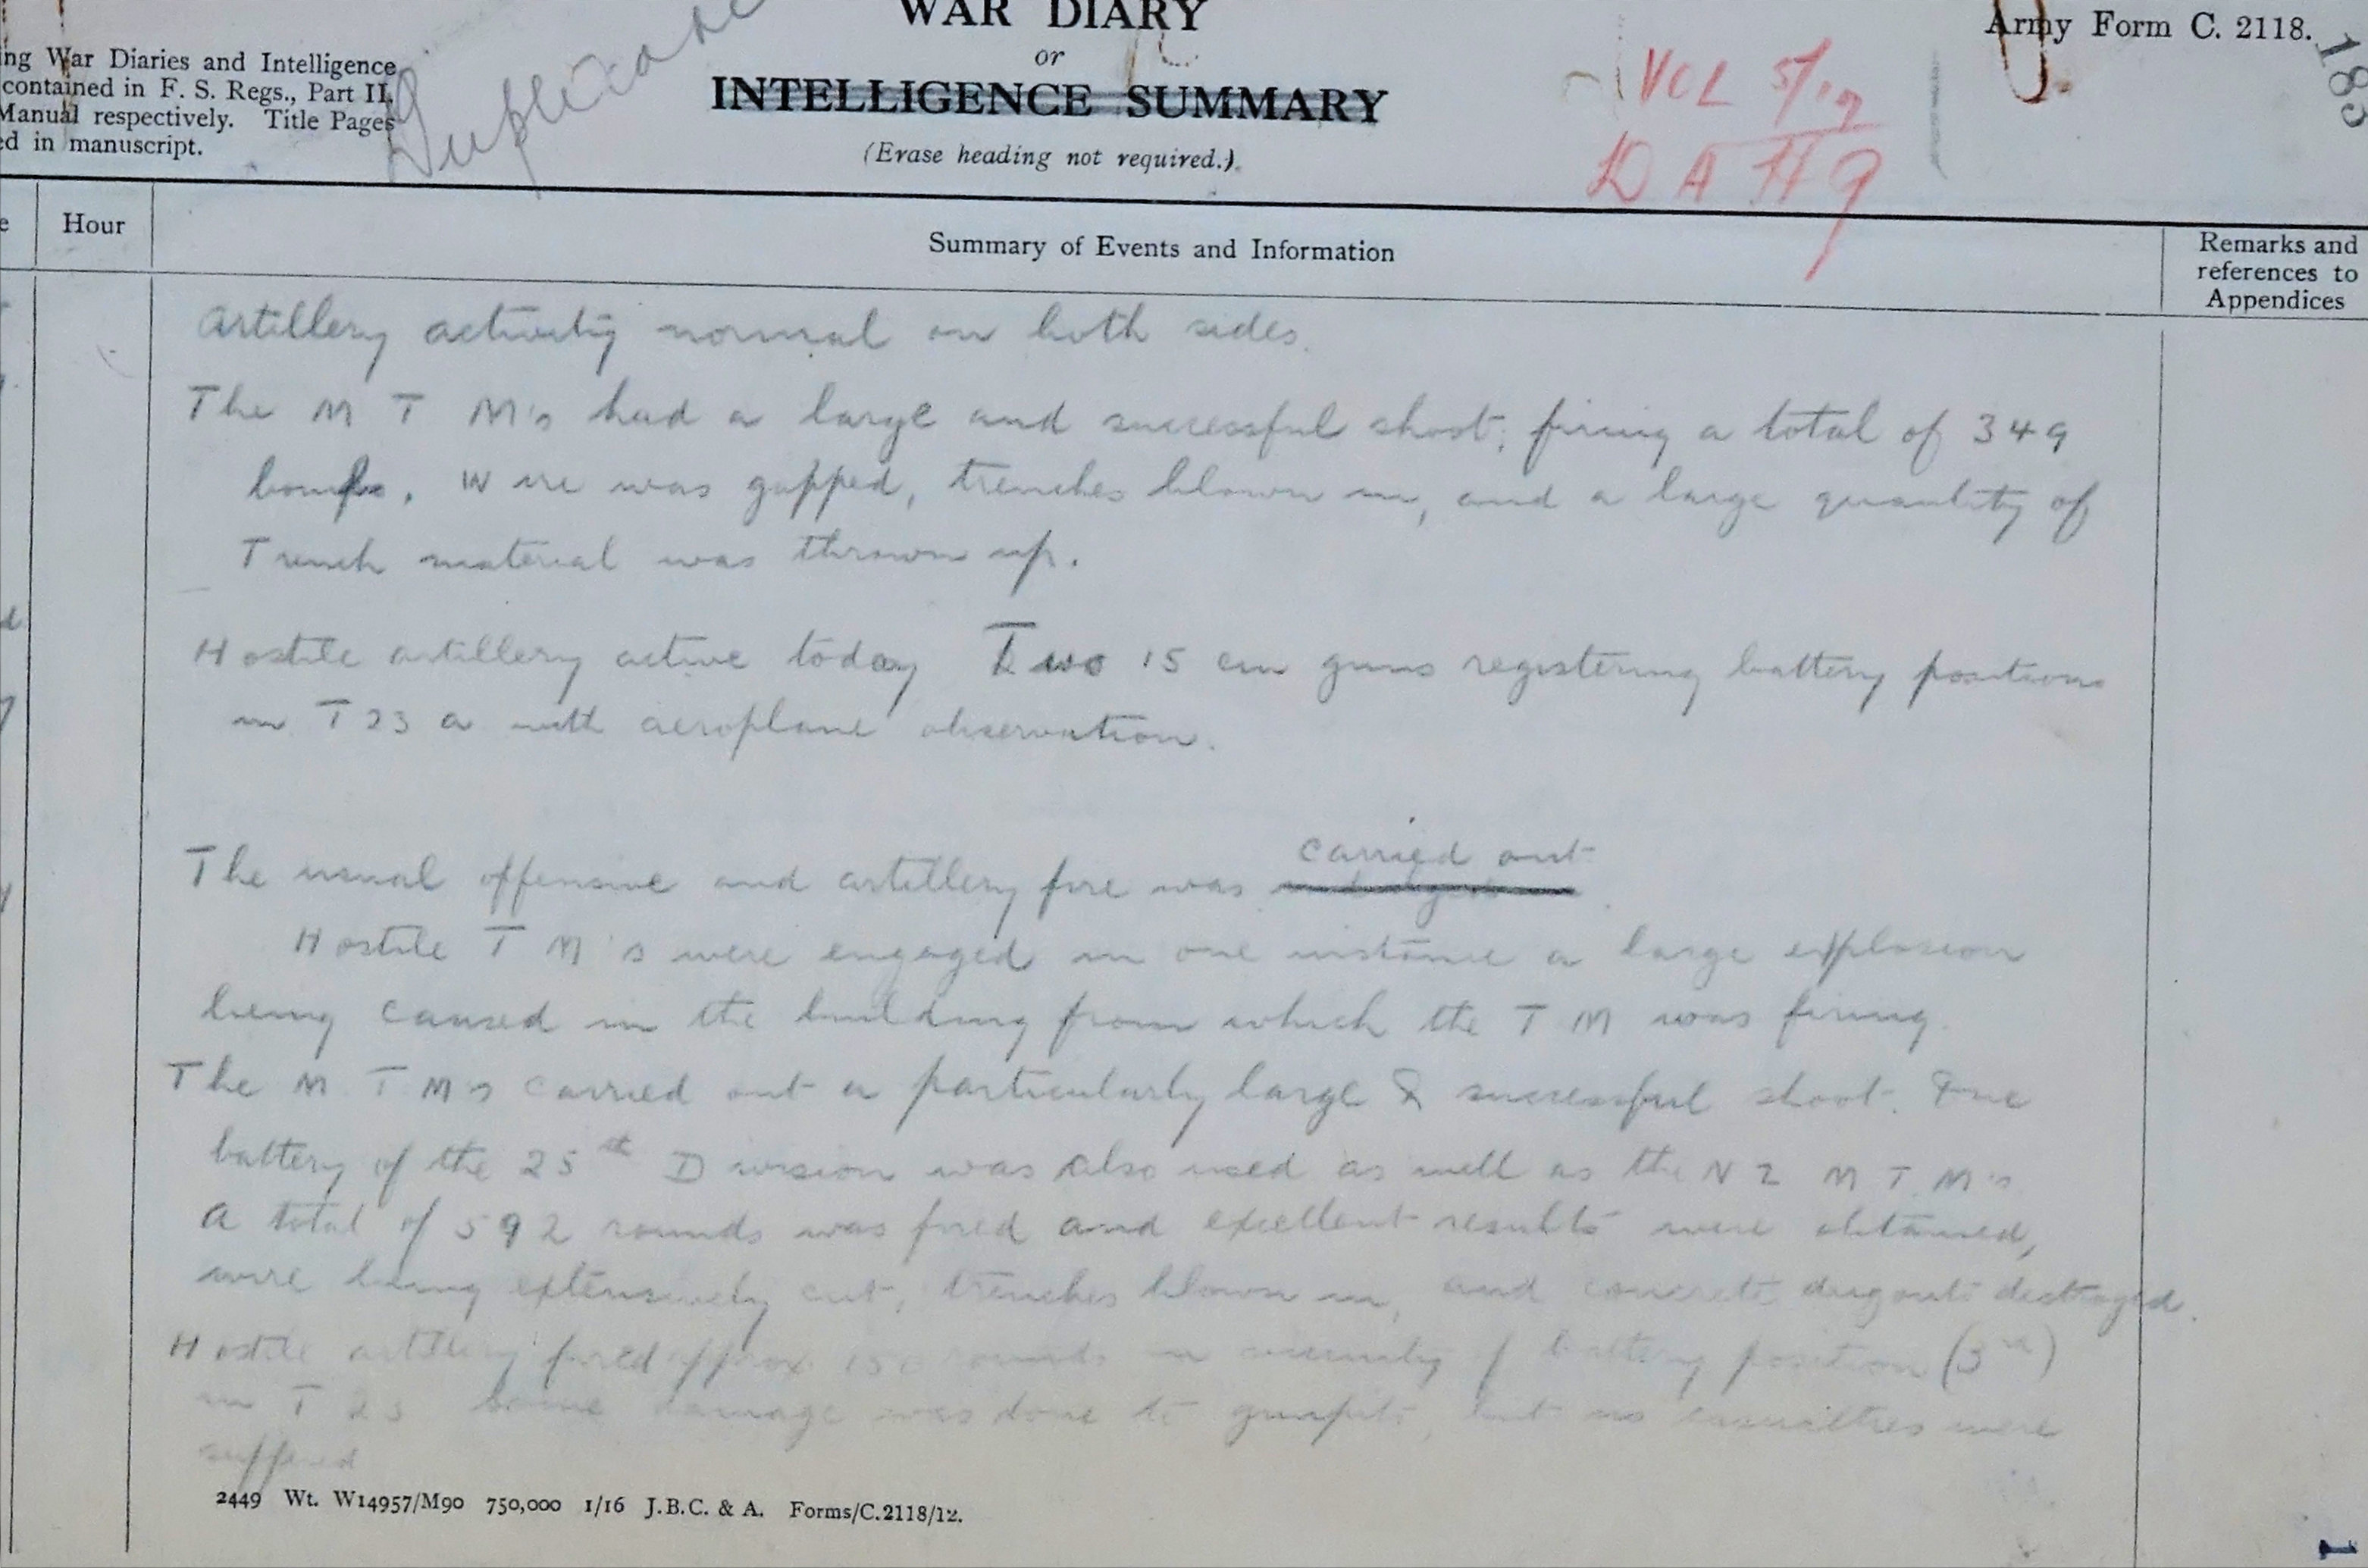 WAR DIARY
or
INTELLIGENCE SUMMARY
(Erase heading not required.)
Army Form C. 2118.
185
ing War Diaries and Intelligence
contained in F. S. Regs., Part II,
Manual respectively. Title Pages
ed in manuscript.
Duplicate
VOL 5/19
e
Hour
Summary of Events and Information
Remarks and
references to
Appendices
Artillery activity normal on both sides.
The M T M's had a large and successful shoot, firing a total of 349
bombs. Wire was gapped, trenches blown in, and a large quantity of
Trench material was thrown up.
Hostile artillery active today Two 15 cm guns registering battery positions
in T 23 a with aeroplane observation.
carried out
The usual offensive and artillery fire was
Hostile T M's were engaged in one instance a large explosion
being caused in the building from which the T M was firing.
The M T M's carried out a particularly large & successful shoot. One
battery of the 25th Division was also used as well as the N Z M T M's
A total of 592 rounds was fired and excellent results were obtained,
wire being extensively cut, trenches blown in, and concrete dugouts destroyed.
Hostile artillery fired approx 150 rounds in vicinity of battery position (3rd)
in T 23 Some damage was done to gunpits, but no casualties were
suffered
2449 Wt. W14957/M90 750,000 1/16 J.B.C. & A. Forms/C.2118/12.